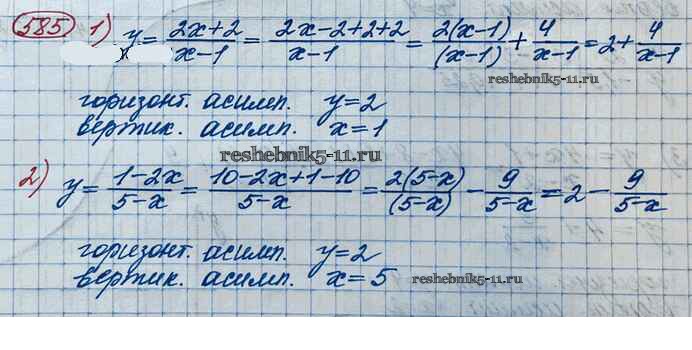 585 1) y = (2x+2)/(x-1) = (2x-2+2+2)/(x-1) = 2(x-1)/(x-1) + 4/(x-1) = 2 + 4/(x-1)
reshebnik5-11.ru
горизонт. асимп. y=2
вертик. асимп. x=1
reshebnik5-11.ru
2) y = (1-2x)/(5-x) = (10-2x+1-10)/(5-x) = 2(5-x)/(5-x) - 9/(5-x) = 2 - 9/(5-x)
горизонт. асимп. y=2
вертик. асимп. x=5
reshebnik5-11.ru